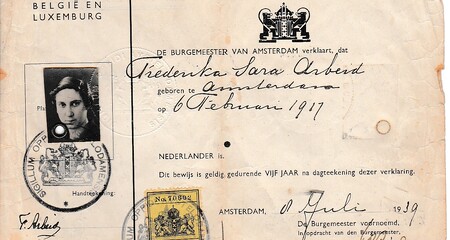 BELGIË EN
LUXEMBURG
DE BURGEMEESTER VAN AMSTERDAM verklaart, dat
Frederika Sara Arbeid
geboren te Amsterdam
op 6 Februari 1917
NEDERLANDER is.
Dit bewijs is geldig gedurende VIJF JAAR na dagteekening dezer verklaring.
Handteekening:
F. Arbeid
No 70502
AMSTERDAM, 8 Juli 1939
De Burgemeester voornoemd.
In opdracht van den Burgemeester,